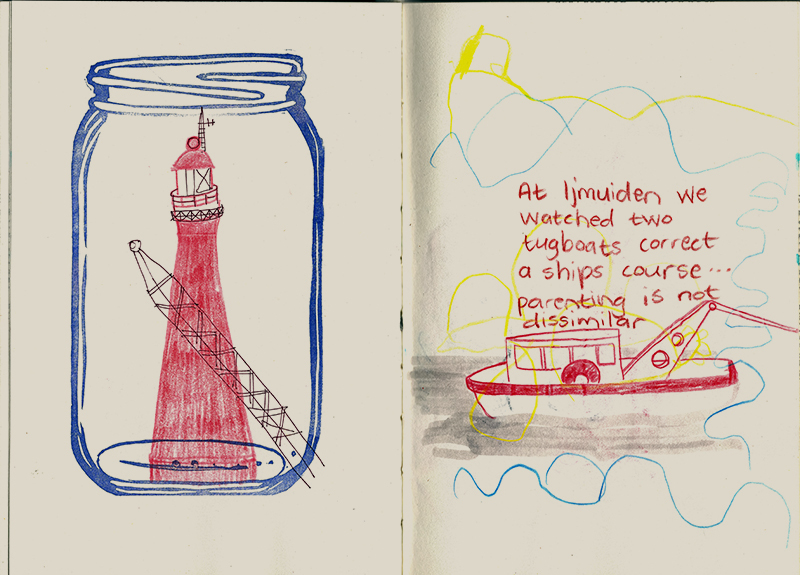 At Ijmuiden we
watched two
tugboats correct
a ships course...
parenting is not
dissimilar